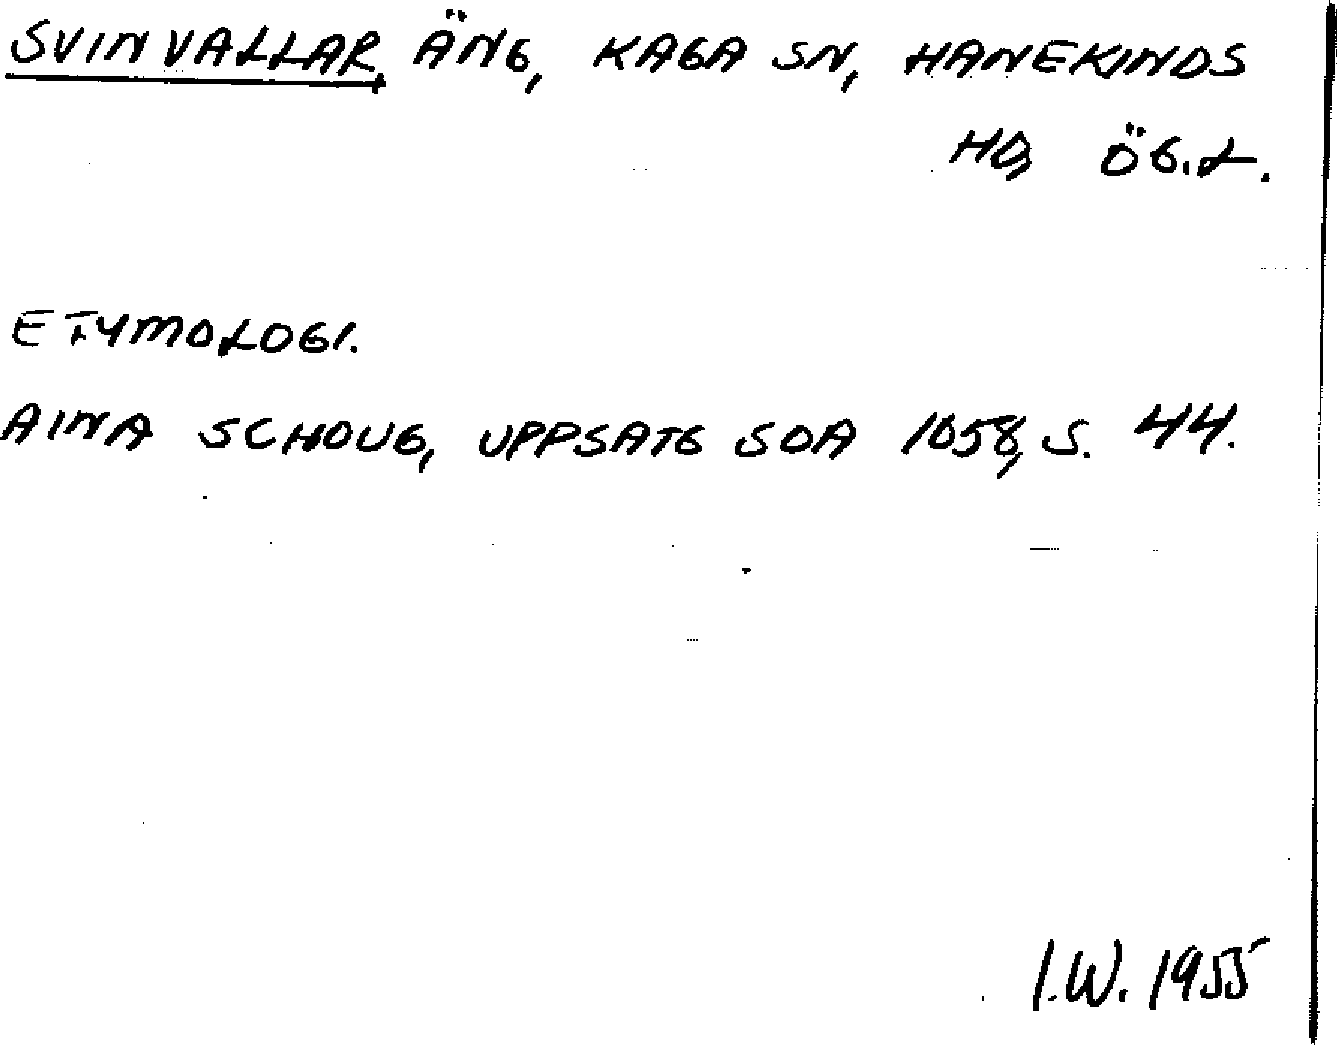 SVINVALLAR, ÄNG, KAGA SN, HANEKINDS
HD, ÖG.L.
ETYMOLOGI.
AINA SCHOUG, UPPSATS SOA 1058, S. 44.
I.W. 1955